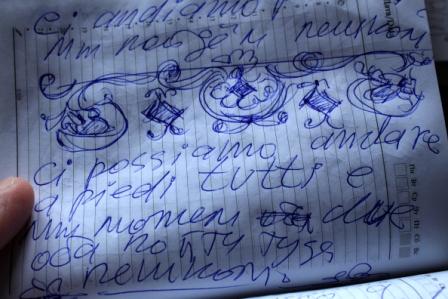 ci andiamo
мы пойдём пешком
ci possiamo andare
a piedi tutti e due
мы можем
оба пойти туда
пешком